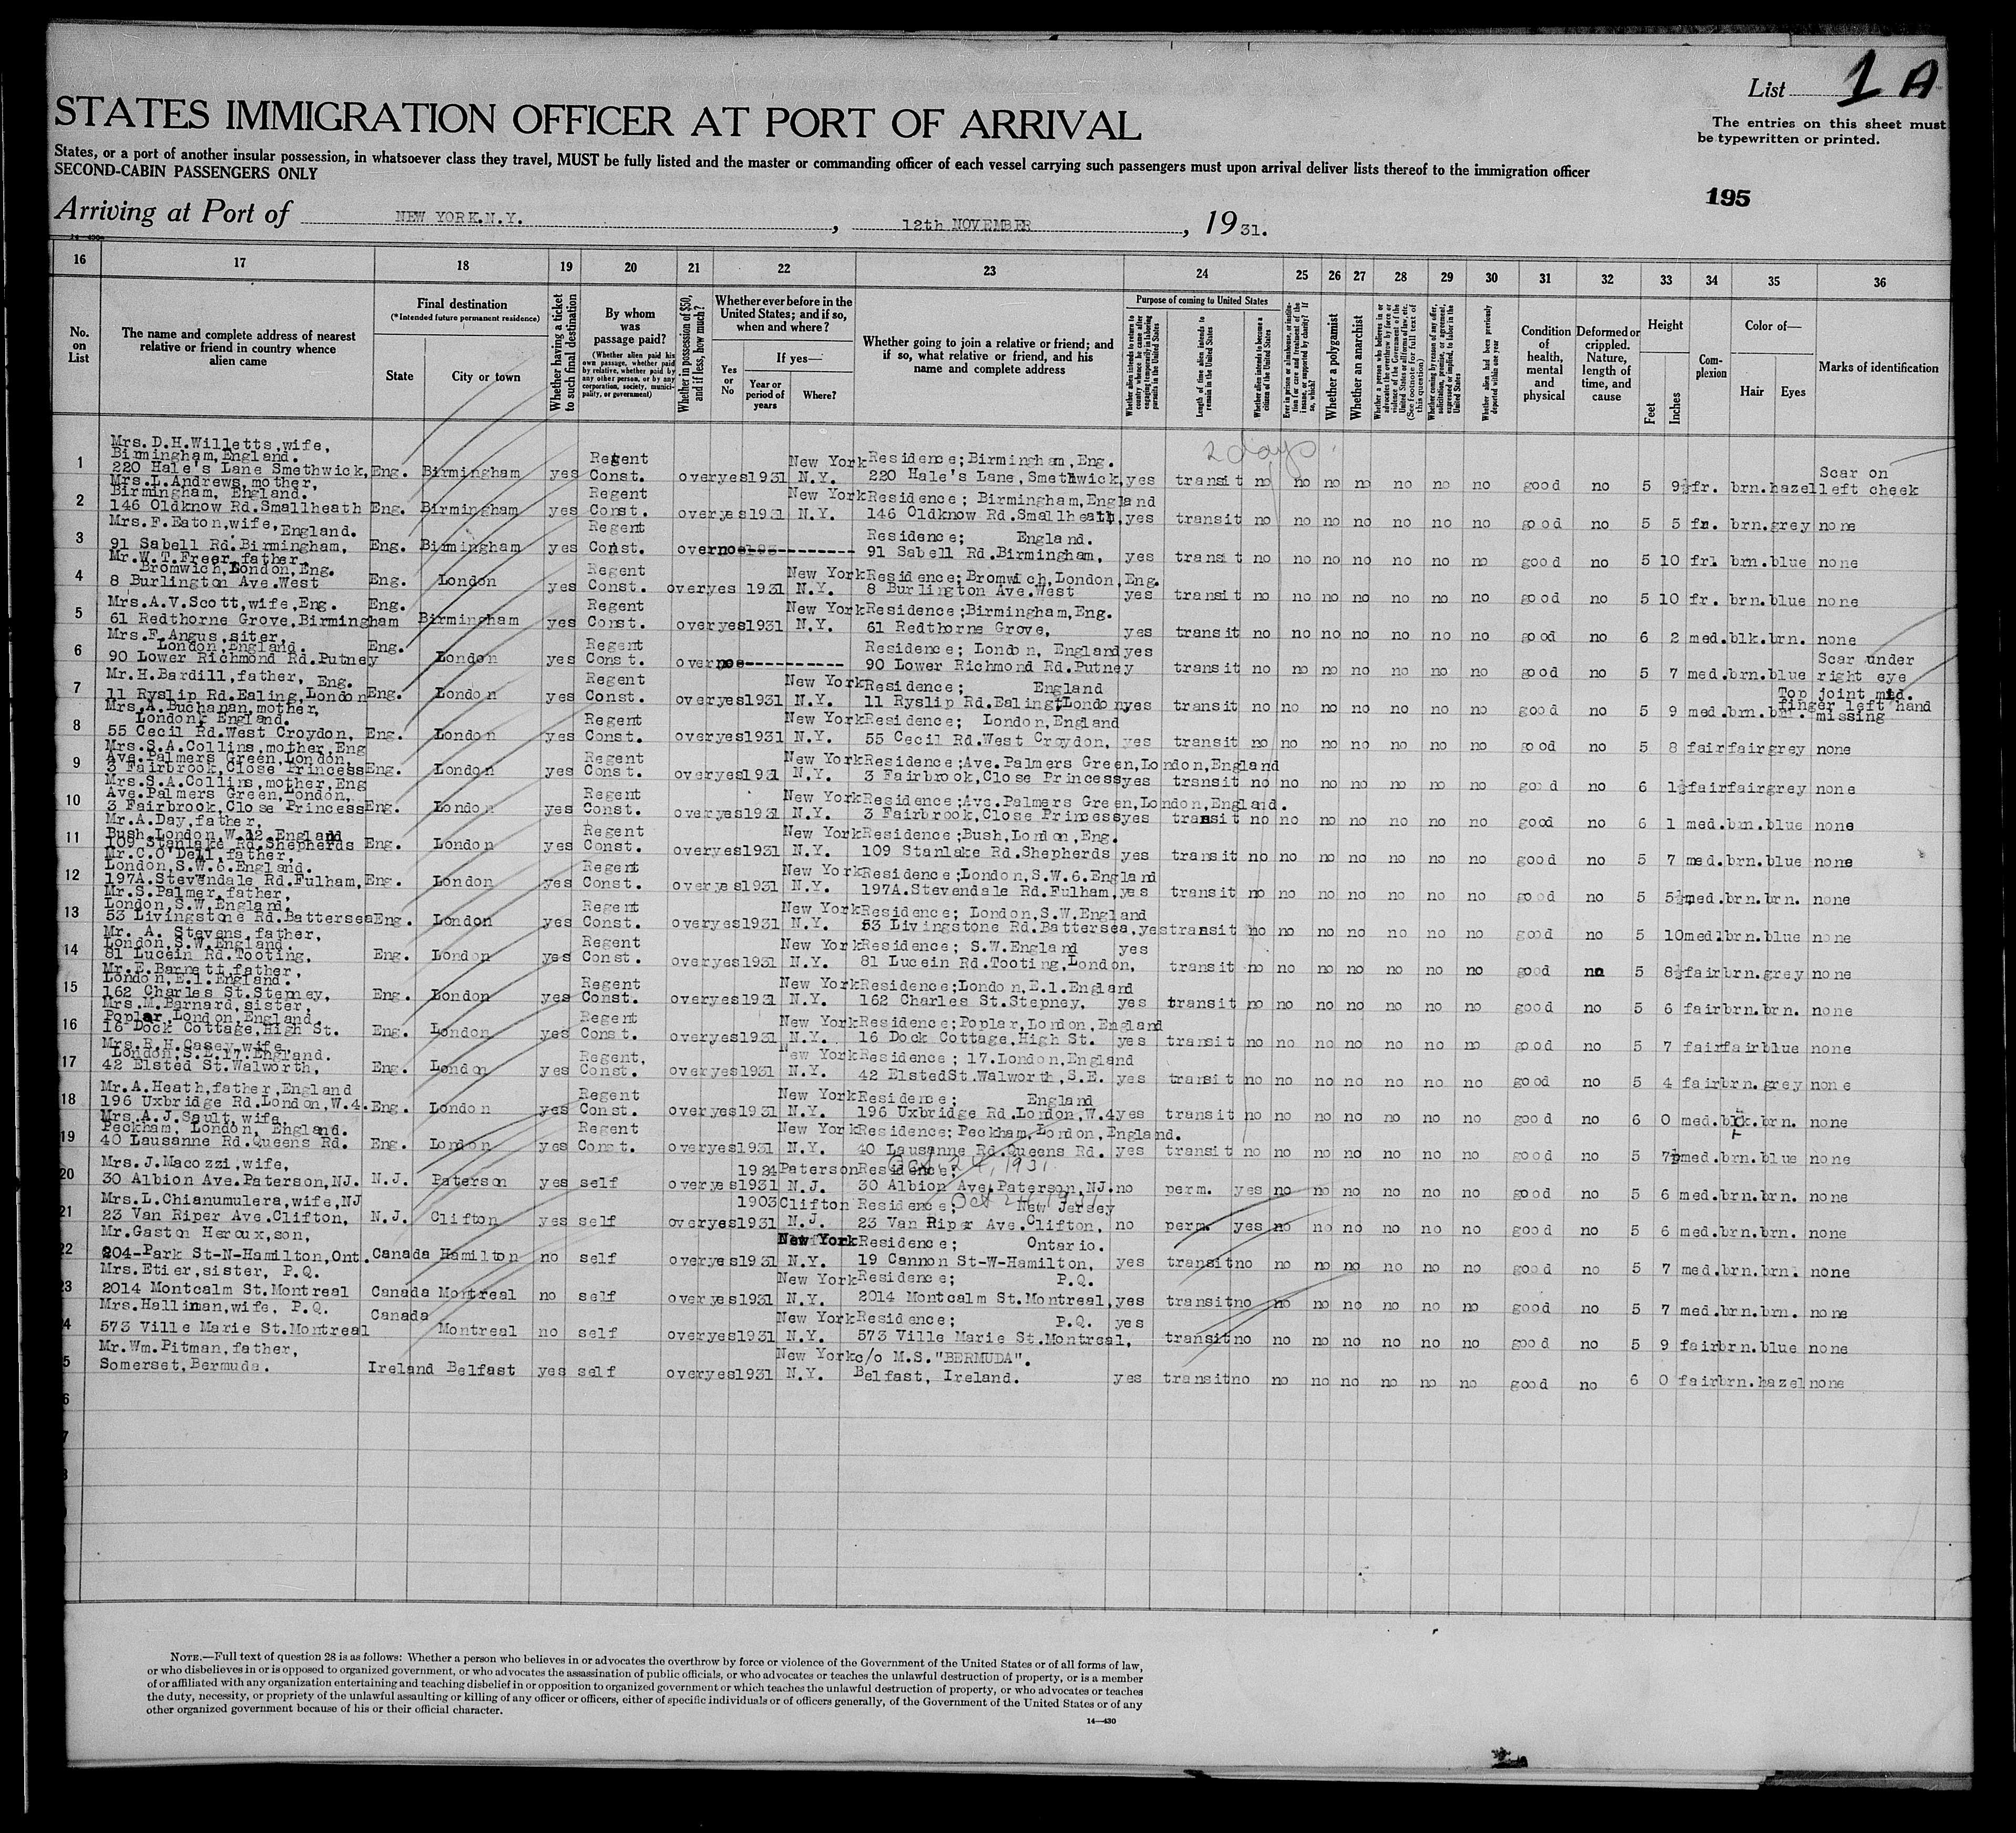 List 1 A
The entries on this sheet must
be typewritten or printed.
STATES IMMIGRATION OFFICER AT PORT OF ARRIVAL
States, or a port of another insular possession, in whatsoever class they travel, MUST be fully listed and the master or commanding officer of each vessel carrying such passengers must upon arrival deliver lists thereof to the immigration officer
SECOND-CABIN PASSENGERS ONLY
195
Arriving at Port of NEW YORK.N.Y. , 12th NOVEMBER , 1931.
16 17 18 19 20 21 22 23 24 25 26 27 28 29 30 31 32 33 34 35 36
No. on List
The name and complete address of nearest relative or friend in country whence alien came
Final destination (*Intended future permanent residence)
State
City or town
Whether having a ticket to such final destination
By whom was passage paid?
(Whether alien paid his own passage, whether paid by relative, whether paid by any other person, or by any corporation, society, municipality, or government)
Whether in possession of $50, and if less, how much?
Whether ever before in the United States; and if so, when and where?
Yes or No
If yes—
Year or period of years
Where?
Whether going to join a relative or friend; and if so, what relative or friend, and his name and complete address
Purpose of coming to United States
Whether alien intends to return to country whence he came after engaging temporarily in laboring pursuits in the United States
Length of time alien intends to remain in the United States
Whether alien intends to become a citizen of the United States
Ever in prison or almshouse, or institution for care and treatment of the insane, or supported by charity? If so, which?
Whether a polygamist
Whether an anarchist
Whether a person who believes in or advocates the overthrow by force or violence of the Government of the United States or all forms of law, etc. (See footnote for full text of this question)
Whether coming by reason of any offer, solicitation, promise, or agreement, expressed or implied, to labor in the United States
Whether alien had been previously deported within one year
Condition of health, mental and physical
Deformed or crippled. Nature, length of time, and cause
Height
Feet
Inches
Complexion
Color of—
Hair
Eyes
Marks of identification
2 days
1 Mrs.D.H.Willetts,wife, Birmingham,England. 220 Hale's Lane Smethwick, Eng. Birmingham yes Regent Const. over yes 1931 New York N.Y. Residence;Birmingham,Eng. 220 Hale's Lane,Smethwick, yes transit no no no no no no no good no 5 9½ fr. brn. hazel Scar on left cheek
2 Mrs.L.Andrews,mother, Birmingham, England. 146 Oldknow Rd.Smallheath Eng. Birmingham yes Regent Const. over yes 1931 New York N.Y. Residence; Birmingham,England 146 Oldknow Rd.Smallheath, yes transit no no no no no no no good no 5 5 fr. brn. grey none
3 Mrs.F.Eaton,wife,England. 91 Sabell Rd.Birmingham, Eng. Birmingham yes Regent Const. over no ---------- Residence; England. 91 Sabell Rd.Birmingham, yes transit no no no no no no no good no 5 10 fr. brn. blue none
4 Mr.W.T.Freer,father, Bromwich,London,Eng. 8 Burlington Ave.West Eng. London yes Regent Const. over yes 1931 New York N.Y. Residence;Bromwich,London,Eng. 8 Burlington Ave.West yes transit no no no no no no no good no 5 10 fr. brn. blue none
5 Mrs.A.V.Scott,wife,Eng. 61 Redthorne Grove,Birmingham Eng. Birmingham yes Regent Const. over yes 1931 New York N.Y. Residence;Birmingham,Eng. 61 Redthorne Grove, yes transit no no no no no no no good no 6 2 med. blk. brn. none
6 Mrs.F.Angus,siter, London,England. 90 Lower Richmond Rd.Putney Eng. London yes Regent Const. over no ---------- Residence; London, England 90 Lower Richmond Rd.Putney yes transit no no no no no no no good no 5 7 med. brn. blue Scar under right eye
7 Mr.H.Bardill,father, Eng. 11 Ryslip Rd.Ealing,London Eng. London yes Regent Const. over yes 1931 New York N.Y. Residence; England 11 Ryslip Rd.Ealing,London, yes transit no no no no no no no good no 5 9 med. brn. Top joint mid. finger left hand missing
8 Mrs.A.Buchanan,mother, London, England. 55 Cecil Rd.West Croydon, Eng. London yes Regent Const. over yes 1931 New York N.Y. Residence; London,England 55 Cecil Rd.West Croydon, yes transit no no no no no no no good no 5 8 fair fair grey none
9 Mrs.S.A.Collins,mother,Eng Ave.Palmers Green,London, 3 Fairbrook,Close Princess Eng. London yes Regent Const. over yes 1931 New York N.Y. Residence;Ave.Palmers Green,London,England 3 Fairbrook,Close Princess yes transit no no no no no no no good no 6 1½ fair fair grey none
10 Mrs.S.A.Collins,mother,Eng Ave.Palmers Green,London, 3 Fairbrook,Close Princess Eng. London yes Regent Const. over yes 1931 New York N.Y. Residence;Ave.Palmers Green,London,England. 3 Fairbrook,Close Princess yes transit no no no no no no no good no 6 1 med. brn. blue none
11 Mr.A.Day,father, Bush,London,W.12.England 109 Stanlake Rd.Shepherds Eng. London yes Regent Const. over yes 1931 New York N.Y. Residence;Bush,London,Eng. 109 Stanlake Rd.Shepherds yes transit no no no no no no no good no 5 7 med. brn. blue none
12 Mr.C.O'Dell,father, London,S.W.6.England. 197A.Stevendale Rd.Fulham, Eng. London yes Regent Const. over yes 1931 New York N.Y. Residence;London,S.W.6.England 197A.Stevendale Rd.Fulham, yes transit no no no no no no no good no 5 5½ med. brn. brn. none
13 Mr.S.Palmer,father, London,S.W.England, 53 Livingstone Rd.Battersea Eng. London yes Regent Const. over yes 1931 New York N.Y. Residence; London,S.W.England 53 Livingstone Rd.Battersea, yes transit no no no no no no no good no 5 10 med. brn. blue none
14 Mr. A. Stevens,father, London,S.W.England. 81 Lucein Rd.Tooting, Eng. London yes Regent Const. over yes 1931 New York N.Y. Residence; S.W.England 81 Lucein Rd.Tooting,London, yes transit no no no no no no no good no 5 8½ fair brn. grey none
15 Mr.E.Barnett,father, London,E.1.England. 162 Charles St.Stepney, Eng. London yes Regent Const. over yes 1931 New York N.Y. Residence;London,E.1.England 162 Charles St.Stepney, yes transit no no no no no no no good no 5 6 fair brn. brn. none
16 Mrs.M.Barnard,sister, Poplar,London,England. 16 Dock Cottage,High St. Eng. London yes Regent Const. over yes 1931 New York N.Y. Residence;Poplar,London,England 16 Dock Cottage,High St. yes transit no no no no no no no good no 5 7 fair fair blue none
17 Mrs.R.H.Casey,wife, London;S.E.17.England. 42 Elsted St.Walworth, Eng. London yes Regent, Const. over yes 1931 New York N.Y. Residence; 17.London,England 42 ElstedSt.Walworth,S.E. yes transit no no no no no no no good no 5 4 fair brn. grey none
18 Mr.A.Heath,father,England 196 Uxbridge Rd.London,W.4. Eng. London yes Regent Const. over yes 1931 New York N.Y. Residence; England 196 Uxbridge Rd.London,W.4. yes transit no no no no no no no good no 6 0 med. blk. brn. none
19 Mrs.A.J.Sault,wife, Peckham, London, England. 40 Lausanne Rd.Queens Rd. Eng. London yes Regent Const. over yes 1931 New York N.Y. Residence;Peckham,London,England. 40 Lausanne Rd.Queens Rd. yes transit no no no no no no no good no 5 7½ med. brn. blue none
20 Mrs.J.Macozzi,wife, 30 Albion Ave.Paterson,NJ. N.J. Paterson yes self over yes 1924 1931 Paterson N.J. Residence; Oct 24, 1931. 30 Albion Ave.Paterson,NJ. no perm. yes no no no no no no good no 5 6 med. brn. brn. none
21 Mrs.L.Chianumulera,wife,NJ 23 Van Riper Ave.Clifton, N.J. Clifton yes self over yes 1903 1931 Clifton N.J. Residence; New Jersey Oct 24, 1931 23 Van Riper Ave.Clifton, no perm. yes no no no no no no good no 5 6 med. brn. brn. none
22 Mr.Gaston Heroux,son, 204-Park St-N-Hamilton,Ont. Canada Hamilton no self over yes 1931 New York N.Y. Residence; Ontario. 19 Cannon St-W-Hamilton, yes transit no no no no no no no good no 5 7 med. brn. brn. none
23 Mrs.Etier,sister, P.Q. 2014 Montcalm St.Montreal Canada Montreal no self over yes 1931 New York N.Y. Residence; P.Q. 2014 Montcalm St.Montreal, yes transit no no no no no no no good no 5 7 med. brn. brn. none
4 Mrs.Halliman,wife, P.Q. 573 Ville Marie St.Montreal Canada Montreal no self over yes 1931 New York N.Y. Residence; P.Q. 573 Ville Marie St.Montreal, yes transit no no no no no no no good no 5 9 fair brn. blue none
5 Mr.Wm.Pitman,father, Somerset,Bermuda. Ireland Belfast yes self over yes 1931 New York N.Y. c/o M.S."BERMUDA". Belfast, Ireland. yes transit no no no no no no no good no 6 0 fair brn. hazel none
6
7
NOTE.—Full text of question 28 is as follows: Whether a person who believes in or advocates the overthrow by force or violence of the Government of the United States or of all forms of law,
or who disbelieves in or is opposed to organized government, or who advocates the assassination of public officials, or who advocates or teaches the unlawful destruction of property, or is a member
of or affiliated with any organization entertaining and teaching disbelief in or opposition to organized government or which teaches the unlawful destruction of property, or who advocates or teaches
the duty, necessity, or propriety of the unlawful assaulting or killing of any officer or officers, either of specific individuals or of officers generally, of the Government of the United States or of any
other organized government because of his or their official character.
14—430